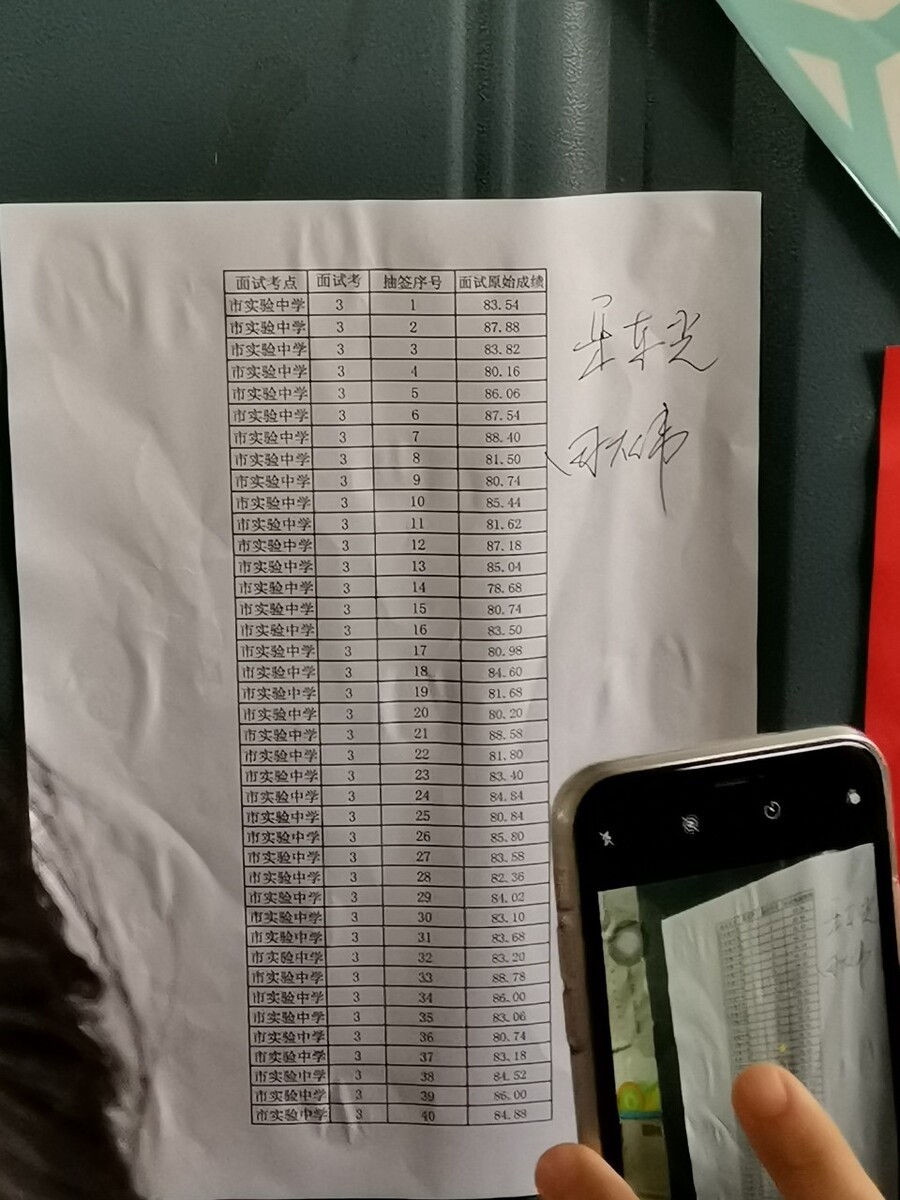 面试考点 面试考 抽签序号 面试原始成绩
市实验中学 3 1 83.54
市实验中学 3 2 87.88
市实验中学 3 3 83.82
市实验中学 3 4 80.16
市实验中学 3 5 86.06
市实验中学 3 6 87.54
市实验中学 3 7 88.40
市实验中学 3 8 81.50
市实验中学 3 9 80.74
市实验中学 3 10 85.44
市实验中学 3 11 81.62
市实验中学 3 12 87.18
市实验中学 3 13 85.04
市实验中学 3 14 78.68
市实验中学 3 15 80.74
市实验中学 3 16 83.50
市实验中学 3 17 80.98
市实验中学 3 18 84.60
市实验中学 3 19 81.68
市实验中学 3 20 80.20
市实验中学 3 21 88.58
市实验中学 3 22 81.80
市实验中学 3 23 83.40
市实验中学 3 24 84.84
市实验中学 3 25 80.84
市实验中学 3 26 85.80
市实验中学 3 27 83.58
市实验中学 3 28 82.36
市实验中学 3 29 84.02
市实验中学 3 30 83.10
市实验中学 3 31 83.68
市实验中学 3 32 83.20
市实验中学 3 33 88.78
市实验中学 3 34 86.00
市实验中学 3 35 83.06
市实验中学 3 36 80.74
市实验中学 3 37 83.18
市实验中学 3 38 84.52
市实验中学 3 39 86.00
市实验中学 3 40 84.88